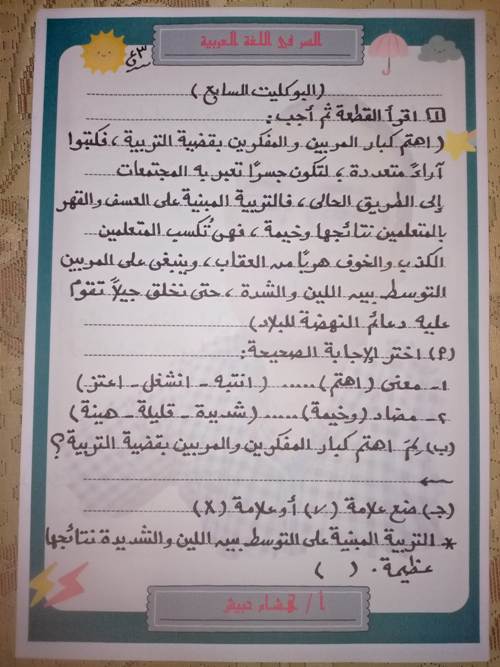 السر في اللغة العربية
٣ع
(البوكليت السابع)
١ اقرأ القطعة ثم أجب:
(اهتم كبار المربين والمفكرين بقضية التربية، فكتبوا
آراءً متعددة؛ لتكون جسرًا تعبر به المجتمعات
إلى الطريق الحالى، فالتربية المبنية على العسف والقهر
بالمتعلمين نتائجها وخيمة، فهى تُكسب المتعلمين
الكذب والخوف هربًا من العقاب، وينبغى على المربين
التوسط بين اللين والشدة، حتى نخلق جيلًا تقوم
عليه دعائم النهضة للبلاد)
(٢) اختر الإجابة الصحيحة:
١- معنى (اهتم) ..... (انتبه - انشغل - اعتز)
٢- مضاد (وخيمة) ..... (شديدة - قليلة - هينة)
(ب) لِمَ اهتم كبار المفكرين والمربين بقضية التربية؟
(جـ) ضع علامة (√) أو علامة (X)
* التربية المبنية على التوسط بين اللين والشديدة نتائجها
عظيمة. ( )
أ / هشام حبيش